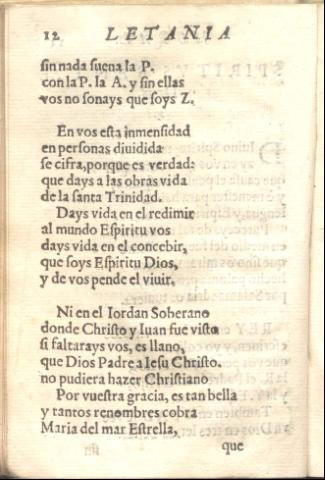 12 LETANIA
sin nada suena la P.
con la P. la A. y sin ellas
vos no sonays que soys Z.
En vos esta inmensidad
en personas diuidida
se cifra, porque es verdad:
que days a las obras vida
de la santa Trinidad.
Days vida en el redimir
al mundo Espiritu vos
days vida en el concebir,
que soys Espiritu Dios,
y de vos pende el viuir.
Ni en el Iordan Soberano
donde Christo y Iuan fue visto
si faltarays vos, es llano,
que Dios Padre a Iesu Christo.
no pudiera hazer Christiano
Por vuestra gracia, es tan bella
y tantos renombres cobra
Maria del mar Estrella,
que